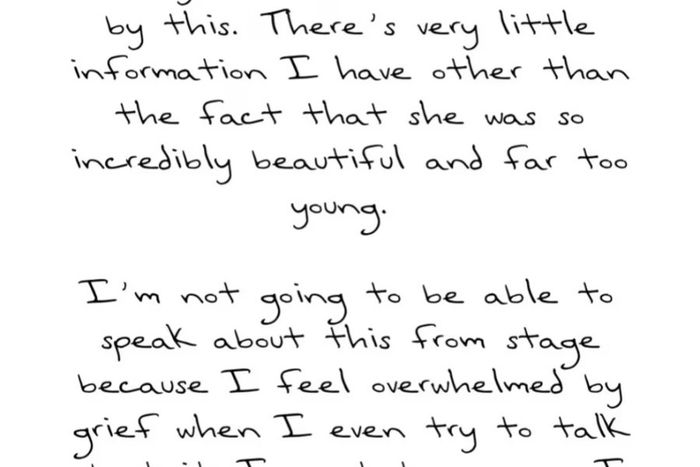 by this. There's very little
information I have other than
the fact that she was so
incredibly beautiful and far too
young.
I'm not going to be able to
speak about this from stage
because I feel overwhelmed by
grief when I even try to talk